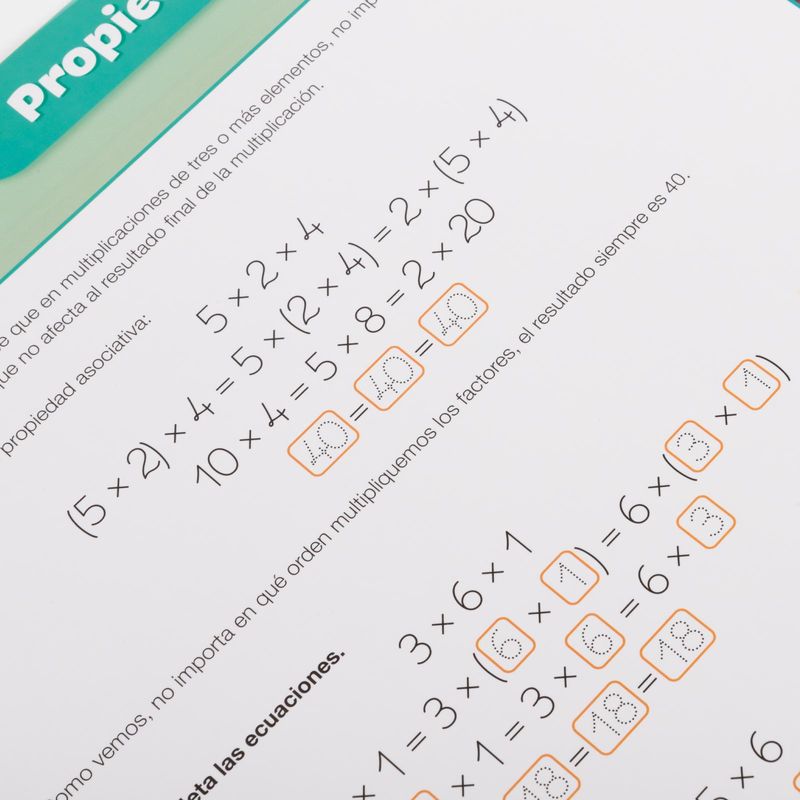 Propie
que en multiplicaciones de tres o más elementos, no
que no afecta al resultado final de la multiplicación.
propiedad asociativa:
5 × 2 × 4
(5 × 2) × 4 = 5 × (2 × 4) = 2 × (5 × 4)
10 × 4 = 5 × 8 = 2 × 20
40 = 40 = 40
omo vemos, no importa en qué orden multipliquemos los factores, el resultado siempre es 40.
eta las ecuaciones.
3 × 6 × 1
× 1 = 3 × (6 × 1) = 6 × (3 × 1)
× 1 = 3 × 6 = 6 × 3
18 = 18 = 18
5 × 6